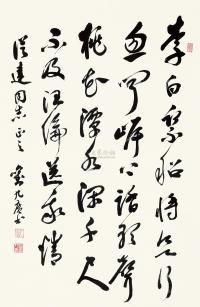 李白乘船將欲行
忽聞岸上踏歌聲
桃花潭水深千尺
不及汪倫送我情
建同志正之